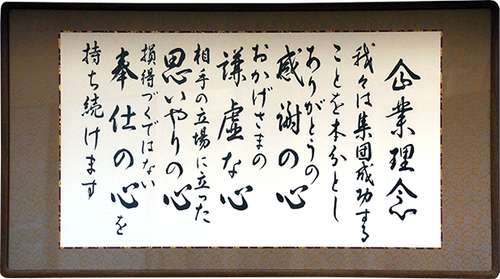 企業理念
我々は集団成功する
ことを本分とし
ありがとうの
感謝の心
おかげさまの
謙虚な心
相手の立場に立った
思いやりの心
損得づくではない
奉仕の心を
持ち続けます